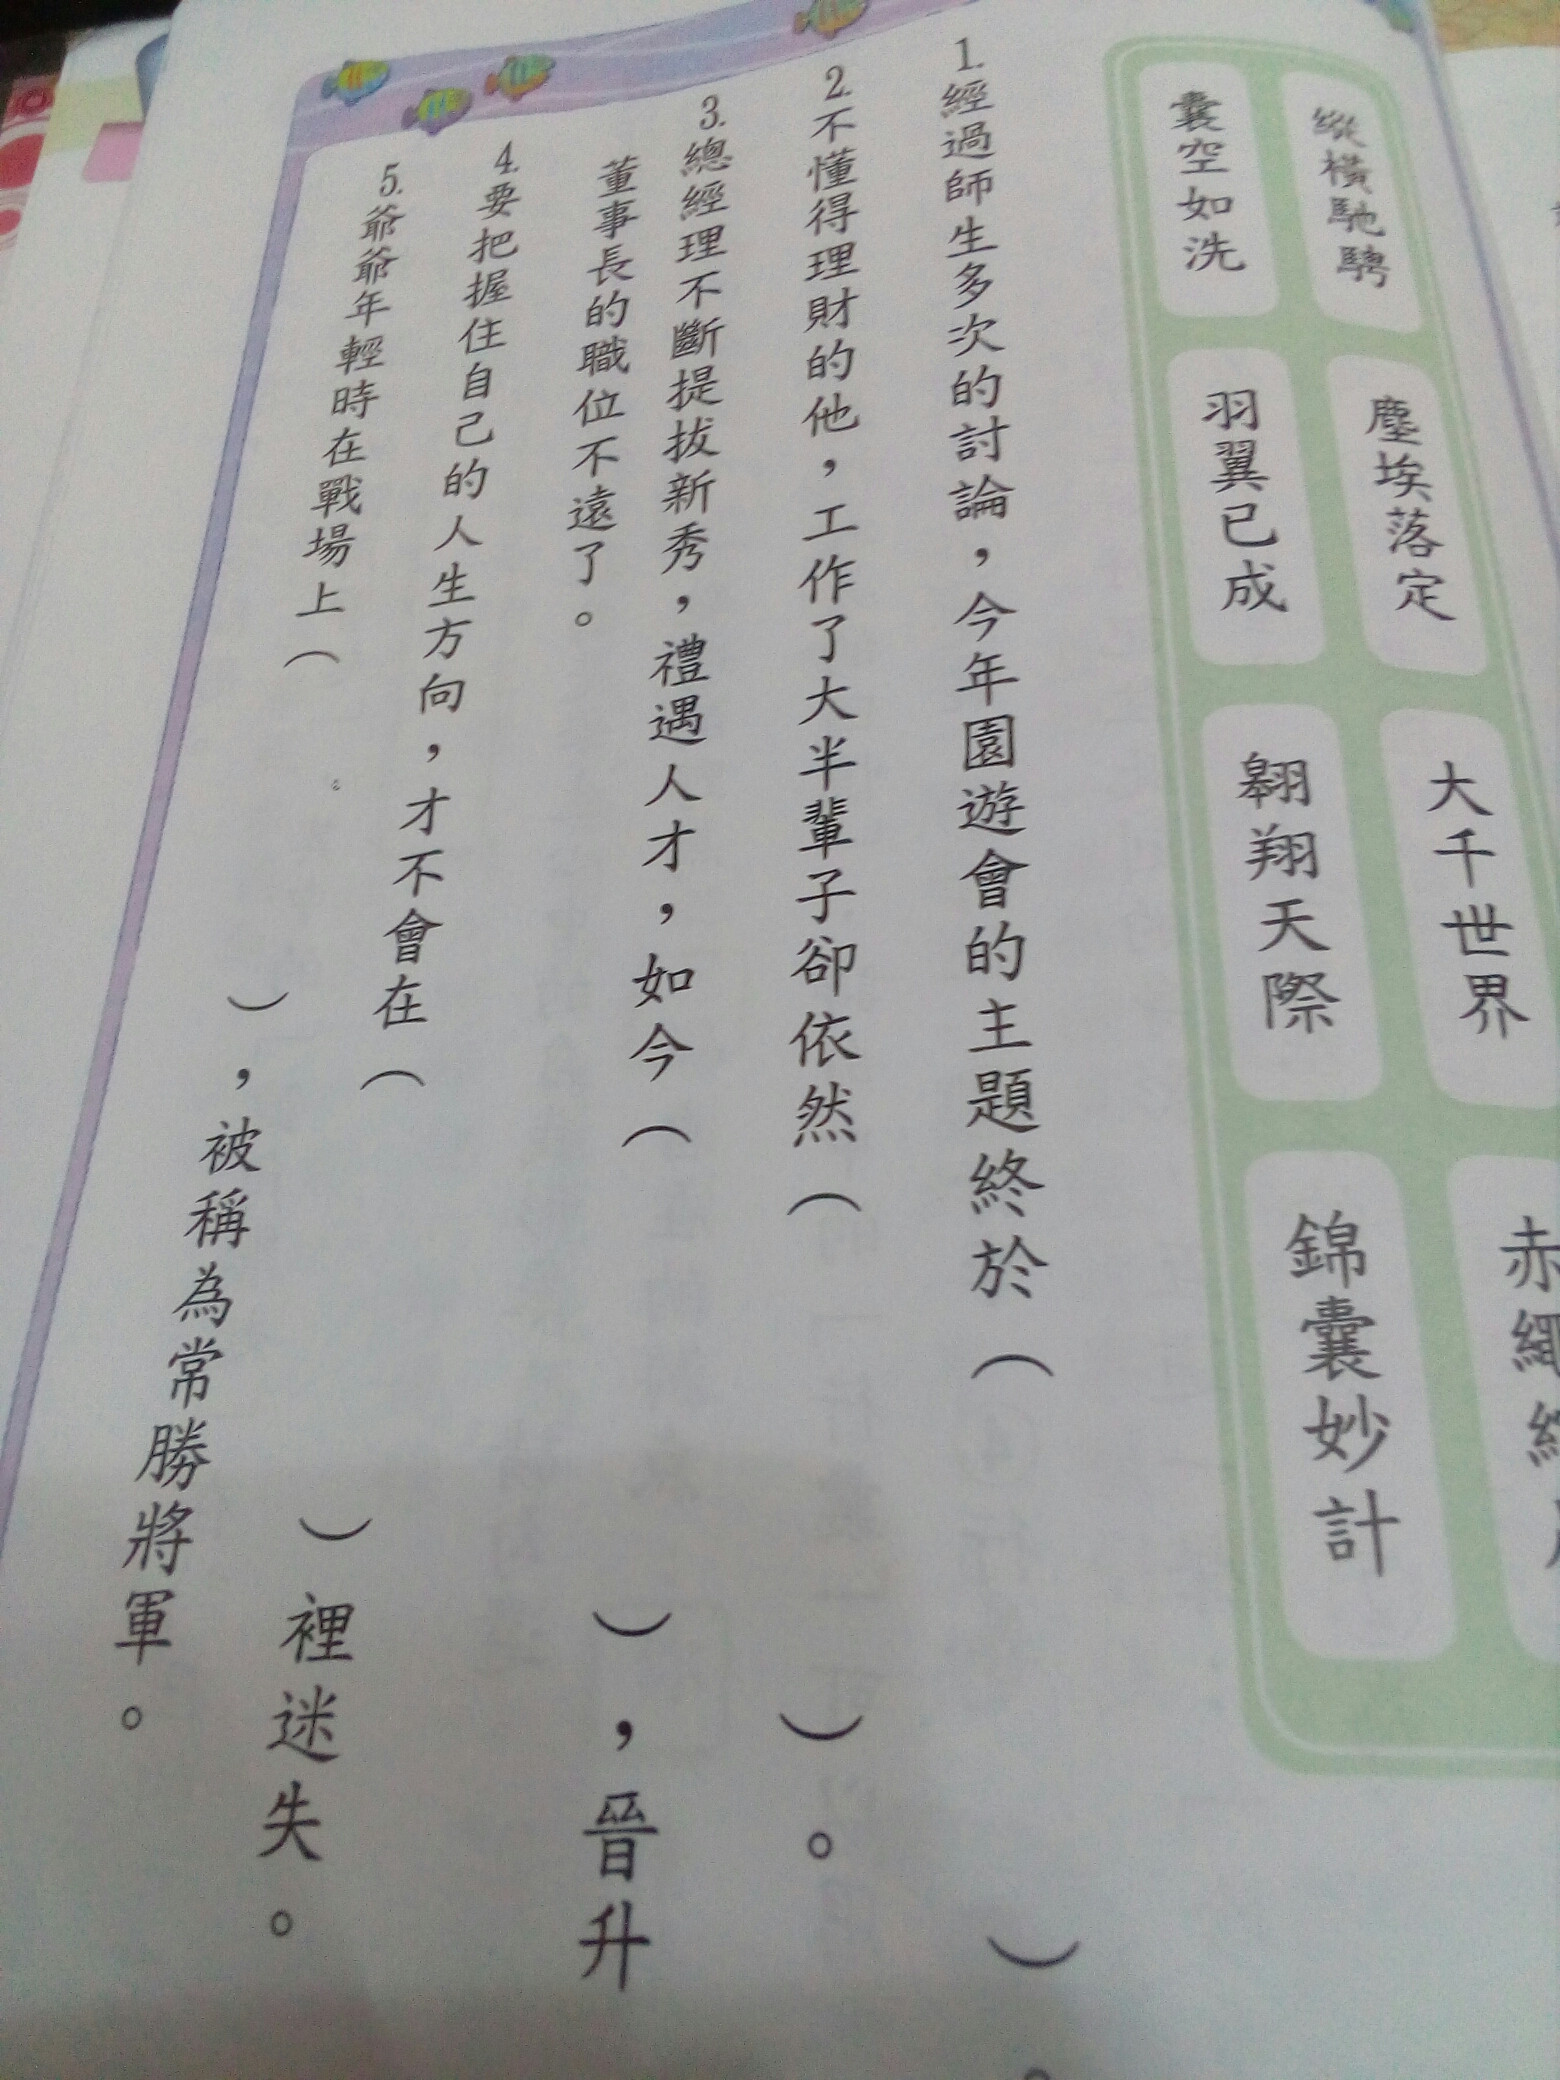 縱橫馳騁
塵埃落定
大千世界
赤繩
囊空如洗
羽翼已成
翱翔天際
錦囊妙計
1.經過師生多次的討論，今年園遊會的主題終於（ ）。
2.不懂得理財的他，工作了大半輩子卻依然（ ）。
3.總經理不斷提拔新秀，禮遇人才，如今（ ），晉升
董事長的職位不遠了。
4.要把握住自己的人生方向，才不會在（ ）裡迷失。
5.爺爺年輕時在戰場上（ ），被稱為常勝將軍。